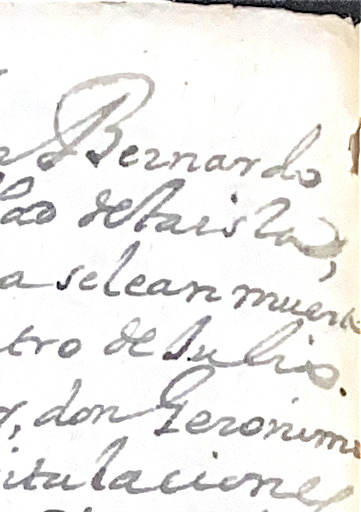 n Bernardo
dad de la isla,
a se lean muert
tro de Julio.
r, don Geronimo
itulaciones